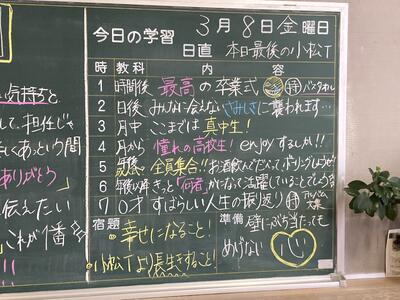 3月8日金曜日
今日の学習
日直 本日最後の小松T
時 教科 内容
1 時間後 最高の卒業式 持 バスタオル
2 日後 みんなに会えないさみしさに襲われます…
3 月中 ここまでは真中生!
4 月から 憧れの高校生! enjoyするしか!!
5 年後 全員集合!! お酒飲んで
6 年後の僕きっと「何者」かになって活躍していることでしょう
70才 すばらしい人生の振り返り 持
宿題
幸せになること!
小松Tより長生きすること!
準備
壁にぶち当たっても
めげない 心
気持ちと
して、担任じゃ
あっという間
ありがとう
伝えたい
これが